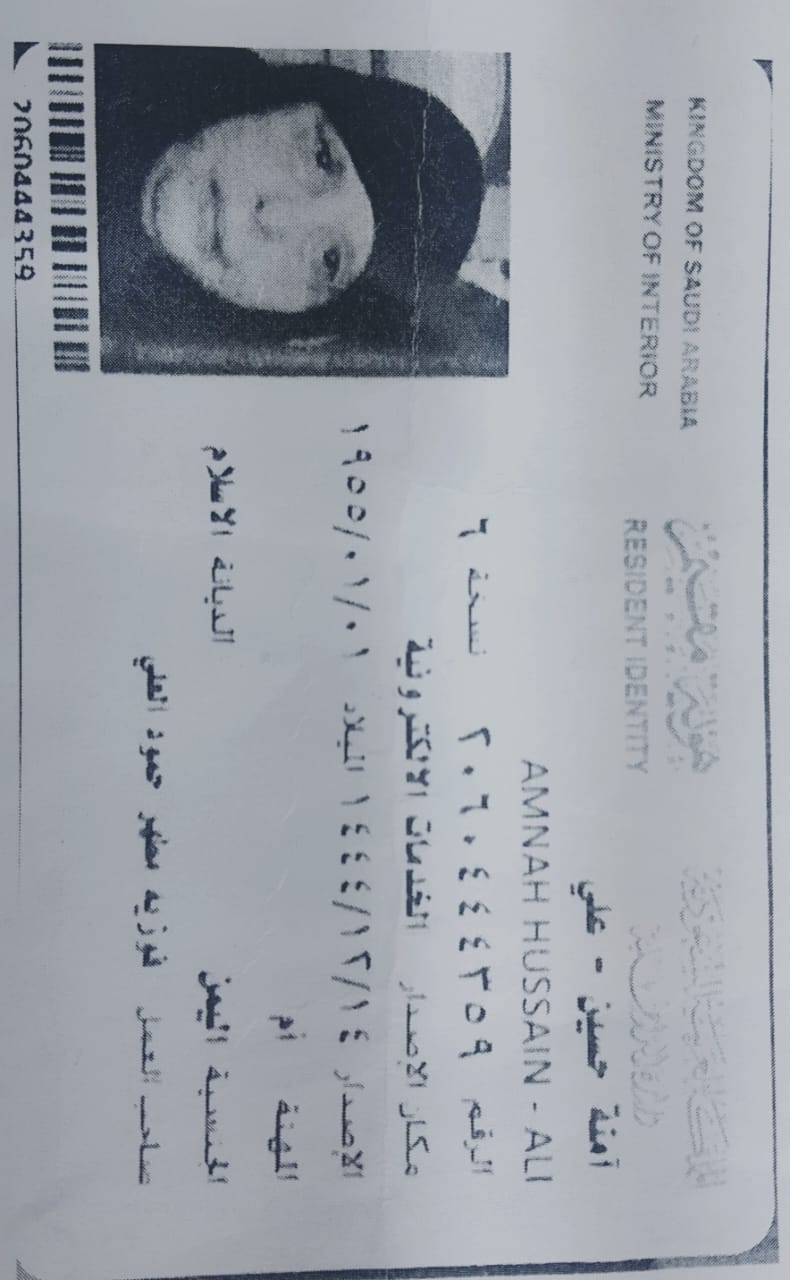 المملكة العربية السعودية
وزارة الداخلية
هوية مقيم
RESIDENT IDENTITY
KINGDOM OF SAUDI ARABIA
MINISTRY OF INTERIOR
آمنة حسين - علي
AMNAH HUSSAIN - ALI
الرقم ٢٠٦٠٤٤٤٣٥٩ نسخة ٦
مكان الإصدار الخدمات الالكترونية
الإصدار ١٤٤٤/١٢/١٤ الميلاد ١٩٥٥/٠١/٠١
المهنة أم
الجنسية اليمن الديانة الاسلام
صاحب العمل فوزيه مظهر حمود العلي
2060444359